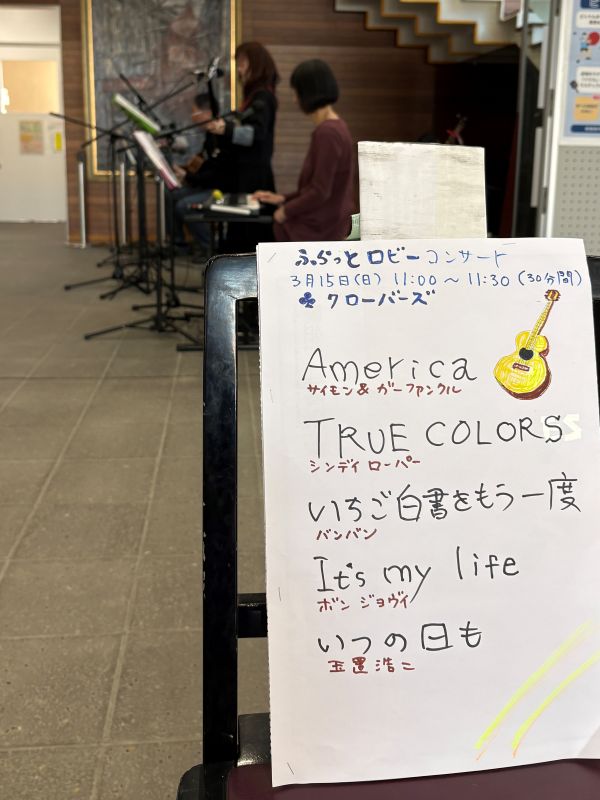 ふらっとロビーコンサート
3月15日(日) 11:00～11:30(30分間)
♣クローバーズ
America
サイモン&ガーファンクル
TRUE COLORS
シンディ ローパー
いちご白書をもう一度
バンバン
It's my life
ボン ジョヴィ
いつの日も
玉置浩二